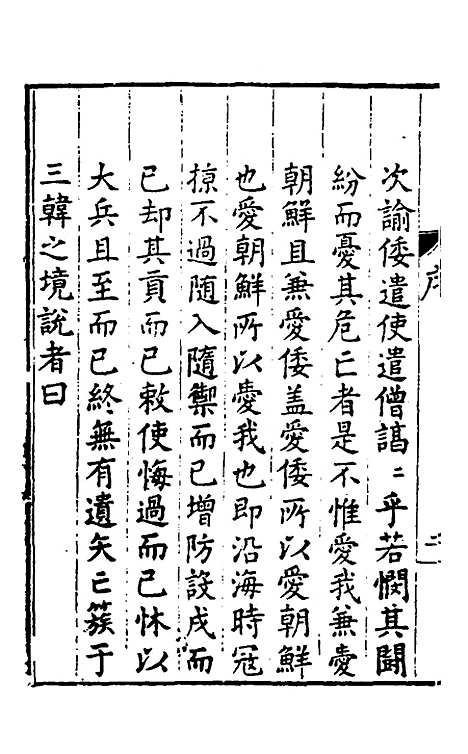 次諭倭遣使遣僧譪〻乎若憫其鬪
紛而憂其危亡者是不惟愛我兼愛
朝鮮且兼愛倭盖愛倭所以愛朝鮮
也愛朝鮮所以愛我也即沿海時冦
掠不過随入隨禦而已增防設戍而
已却其貢而已敕使悔過而已怵以
大兵且至而已終無有遺矢亡簇于
三韓之境說者曰
序